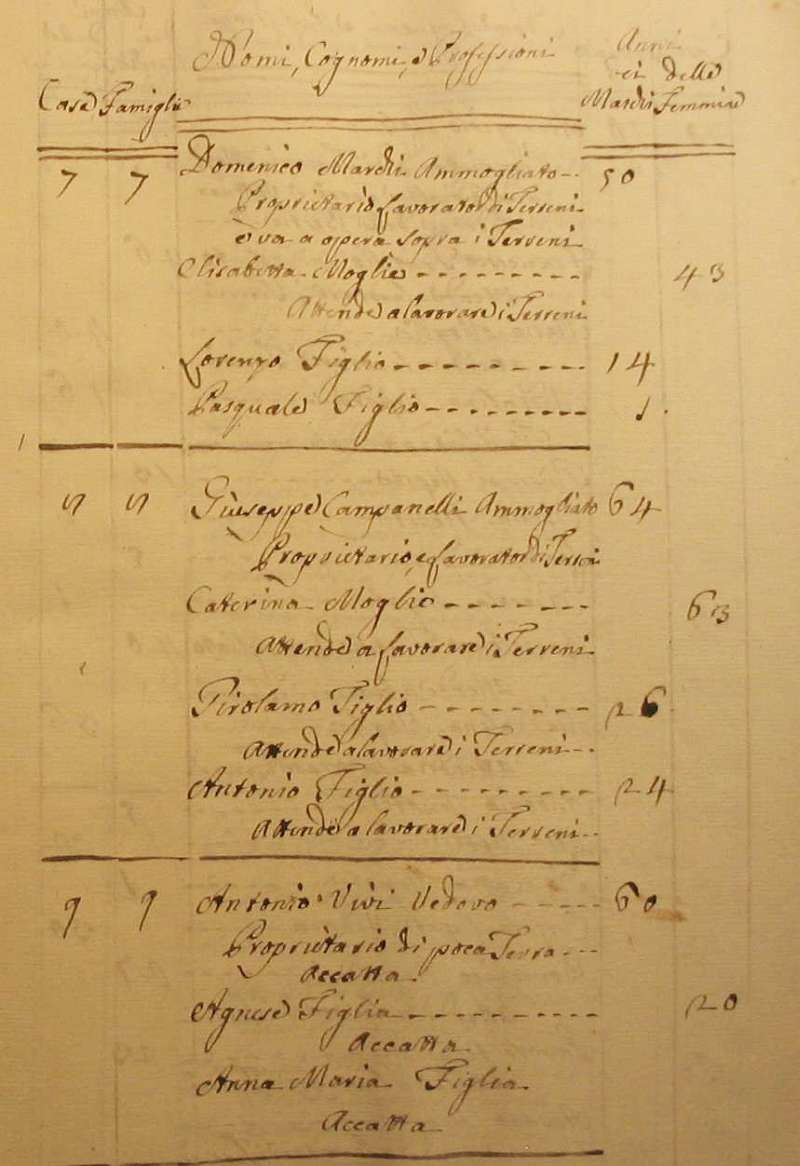 Nomi, Cognomi, e Professioni
Anni
ei delle
Case Famiglie
Maschi Femmine
7 7 Domenico Ammogliato 50
Proprietario Lavorator di Terreni
e va a opera sopra i Terreni
Elisabetta Moglie 43
Attende a lavorare i Terreni
Lorenzo Figlio 14
Pasquale Figlio 1.
8 8 Giuseppe Campanelli Ammogliato 64
Proprietario, e Lavorator di Terreni
Caterina Moglie 63
Attende a Lavorare i Terreni
Girolamo Figlio 26
Attende a lavorare i Terreni
Antonio Figlio 24
Attende a lavorare i Terreni
9 9 Antonio Vivi Vedovo 60
Proprietario di poca Terra
Accatta.
Agnese Figlia 20
Accatta
Anna Maria Figlia
Accatta